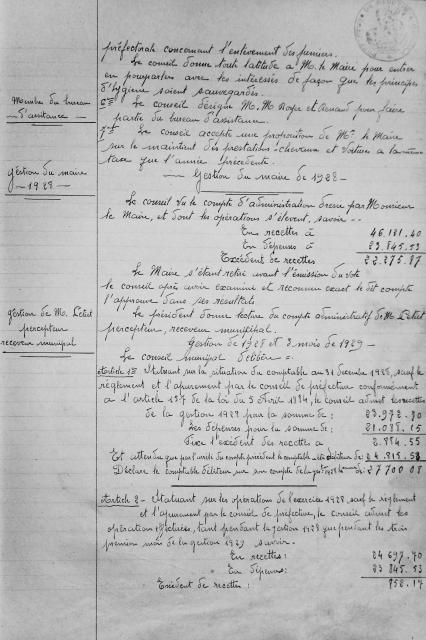 préfectorale concernant l'enlèvement des fumiers.
Le conseil donne toute latitude à M. le Maire pour entrer
en pourparlers avec les intéressés de façon que les principes
d'hygiène soient sauvegardés.
Membre du bureau
d'assistance
6° Le conseil désigne M. M. et pour faire
partie du bureau d'assistance.
7° Le Conseil accepte une proposition de Mr le Maire
sur le maintient des prestations chevaux et voitures a la même
taxe que l'année précédente.
Gestion du maire
- 1928 -
- Gestion du maire de 1928 -
Le Conseil vu le compte d'administration dressé par Monsieur
le Maire, et dont les opérations s'élèvent, savoir :
En recettes à 46.121.40
En dépenses à 23.845.53
Excédent de recettes 22.275.87
Le Maire s'étant retiré avant l'émission du vote
le conseil après avoir examiné et reconnu exact le dit compte
l'approuve dans ses résultats
gestion de M. Létet
percepteur
receveur municipal
Le président donne lecture du compte administratif de M. Létet
percepteur, receveur municipal.
Gestion de 1928 et 3 mois de 1929 -
Le Conseil municipal délibère :
Article 1er Statuant sur la situation du comptable au 31 décembre 1928, sauf le
règlement et l'apurement par le conseil de préfecture conformément
à l'article 157 de la loi du 5 Avril 1884, le conseil admet les recettes
de la gestion 1928 pour la somme de : 23.972.70
Les dépenses pour la somme de : 21.088.15
Fixe l'excédent des recettes à 2.884.55
Et attendu que par l'arrêt du compte précédent le comptable a été débiteur de 24.815.53
Déclare le comptable débiteur sur son compte de la gestion 1928 de : 27700 08
Article 2 - Statuant sur les opérations de l'exercice 1928, sauf le règlement
et l'apurement par le conseil de préfecture, le Conseil admet les
opérations effectuées, tant pendant la gestion 1928 que pendant les trois
premiers mois de la gestion 1929 savoir.
En recettes : 24 697.70
En dépenses : 23 845.53
Excédent de recettes : 852.17